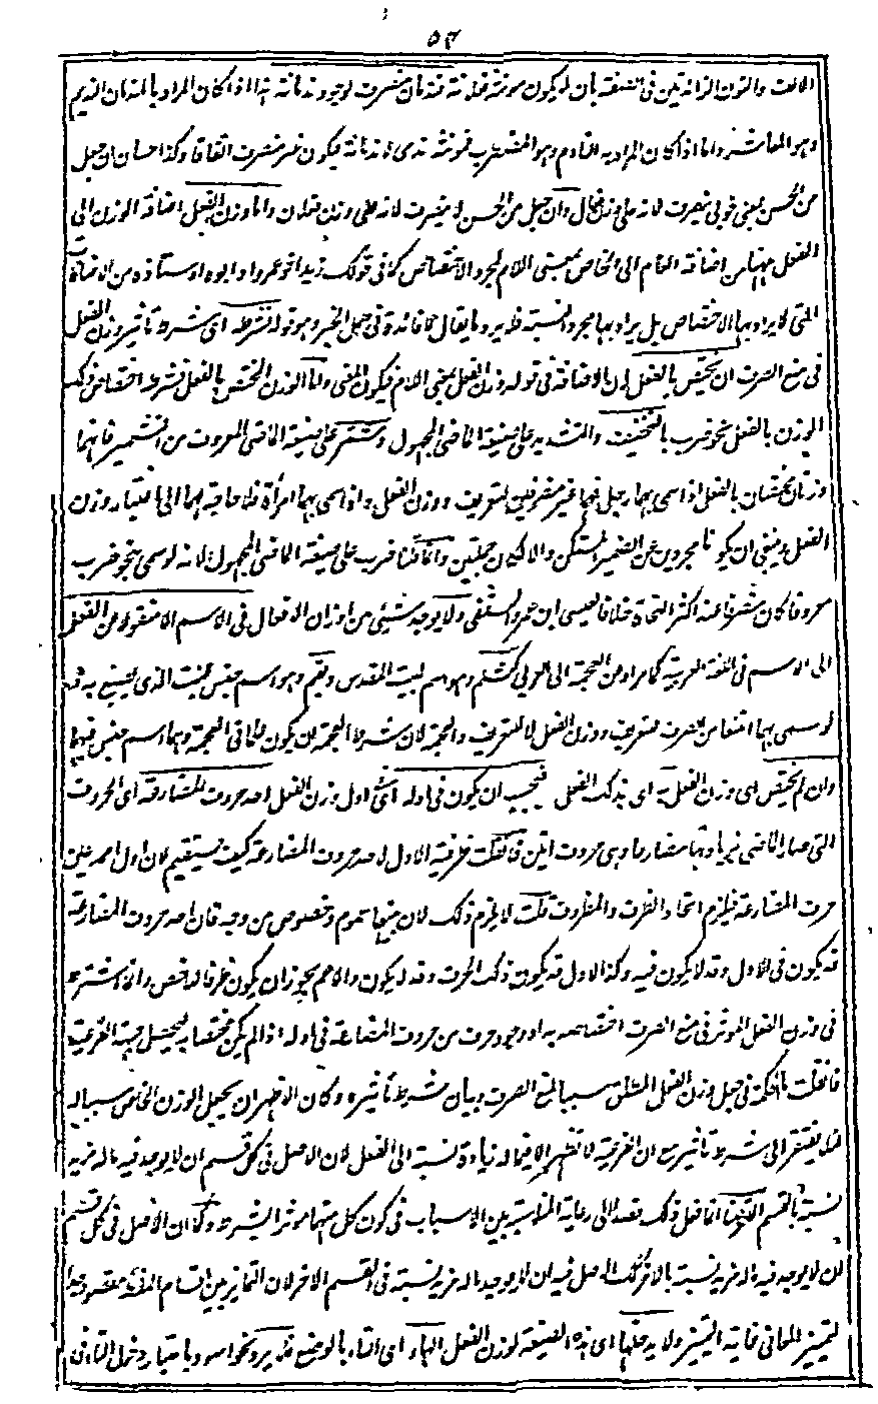 ٥٣
الالف والنون الزائدتين فى الصفة بان لا يكون مؤنثه فعلانة فندمان منصرف لوجود ندمانة هذا اذا كان المراد بالندمان النديم
وهو المعاشر واما اذا كان المراد به النادم وهو المتندم فمؤنثه ندمى لا ندمانة فيكون غير منصرف اتفاقا وكذا حسان ان جعل
من الحسن بمعنى خوبى ينصرف لانه على وزن فعال وان جعل من الحس لا ينصرف لانه على وزن فعلان واما وزن الفعل اضافة الوزن الى
الفعل ههنا من اضافة العام الى الخاص بمعنى اللام لمجرد الاختصاص كما فى قولك زيد اخو عمرو او ابوه او استاذه من الاضافات
التى لا يراد بها الاختصاص بل يراد بها مجرد النسبة فلا يرد ما يقال لا فائدة فى جعل الخبر وهو قوله فشرطه اى شرط تاثير وزن الفعل
فى منع الصرف ان يختص بالفعل لان الاضافة فى قوله وزن الفعل بمعنى اللام فيكون المعنى واما الوزن المختص بالفعل فشرطه اختصاص ذلك
الوزن بالفعل نحو ضرب بالتخفيف والتشديد على صيغة الماضى المجهول وشمر على صيغة الماضى المعروف من التشمير فانهما
وزنان يختصان بالفعل اذا سمى بهما رجل فهما غير منصرفين لتعريف ووزن الفعل واذا سمى بهما امرأة فلا حاجة بهما الى اعتبار وزن
الفعل وينبغى ان يكونا مجردين عن الضمير المستكن والا لكان جملتين وانما قلنا ضرب على صيغة الماضى المجهول لانه لو سمى بنحو ضرب
معروفا كان منصرفا عند اكثر النحاة خلافا لعيسى ابن عمرو الثقفى ولا يوجد شئ من اوزان الافعال فى الاسم الا منقولا من الفعل
الى الاسم فى اللغة العربية كما مر او من العجمة الى العربى كشلم وهو اسم لبيت المقدس وبقم وهو اسم جنس لنبت الذى يصبغ به فهو
لو سمى بها امتنعا من الصرف لتعريف ووزن الفعل لا للتعريف والعجمة لان شرط العجمة ان يكون علما فى العجمة وهما اسم جنس فيها
وان لم يختص اى وزن الفعل به اى بذلك الفعل فيجب ان يكون فى اوله اى اول وزن الفعل احد حروف المضارعة اى الحروف
التى صار الماضى بزيادتها مضارعا وهى حروف اتين فان قلت ظرفية الاول لاحد حروف المضارعة كيف يستقيم لان اول احمد عين
حرف المضارعة فيلزم اتحاد الظرف والمظروف قلت لا يلزم ذلك لان بينهما عموم وخصوص من وجه فان احد حروف المضارعة
قد يكون فى الاول وقد لا يكون فيه وكذا الاول قد يكون ذلك الحرف وقد لا يكون والاعم يجوز ان يكون ظرفا للاخص وانما اشترط
فى وزن الفعل المؤثر فى منع الصرف اختصاصه به او وجود حرف من حروف المضارعة فى اوله اذا لم يكن مختصا به ليحصل جهة الفرعية
فان قلت ما الحكمة فى جعل وزن الفعل المطلق سببا لمنع الصرف وبيان شرط تاثيره وكان الاظهر ان يجعل الوزن الخاص سببا له
فلا يفتقر الى شرط تاثير مع ان الفرعية لا تظهر الا فيما له زيادة نسبة الى الفعل لان الاصل فى كل قسم ان لا يوجد فيه ما له مزيد
نسبة بالقسم الاخر قلنا انما فعل ذلك قصدا الى رعاية المناسبة بين الاسباب فى كون كل منها مؤثرا بشرط وكان الاصل فى كل قسم
ان لا يوجد فيه ما له مزيد نسبة بالاخر لكن الاصل فيه ان لا يوجد ما له مزيد نسبة فى القسم الاخر لان التمايز بين اقسام الفعل مقصود
لتميز المعانى غاية التميز ولا يدخلها اى هذه الصيغة لوزن الفعل الهاء اى التاء بالوضع فلا يرد نحو اسود باعتبار دخول التاء فى